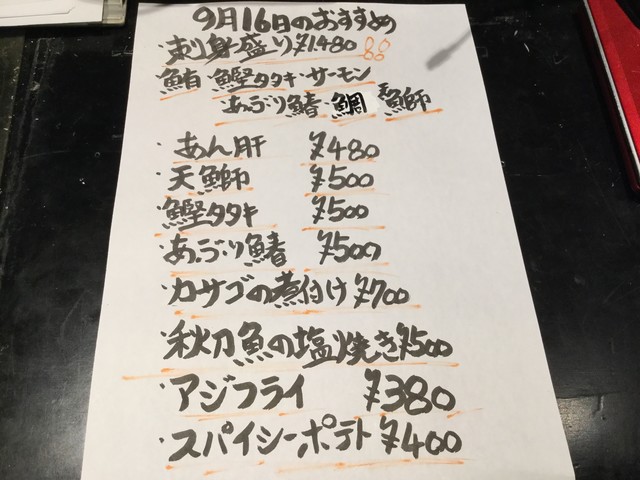 9月16日のおすすめ
・刺身盛り¥1480
・鮪 鰹タタキ・サーモン
あぶり鰆・鯛 天魚師
・あん肝 ¥480
・天魚師 ¥500
・鰹タタキ ¥500
・あぶり鰆 ¥500
・カサゴの煮付け ¥700
・秋刀魚の塩焼き¥500
・アジフライ ¥380
・スパイシーポテト¥400